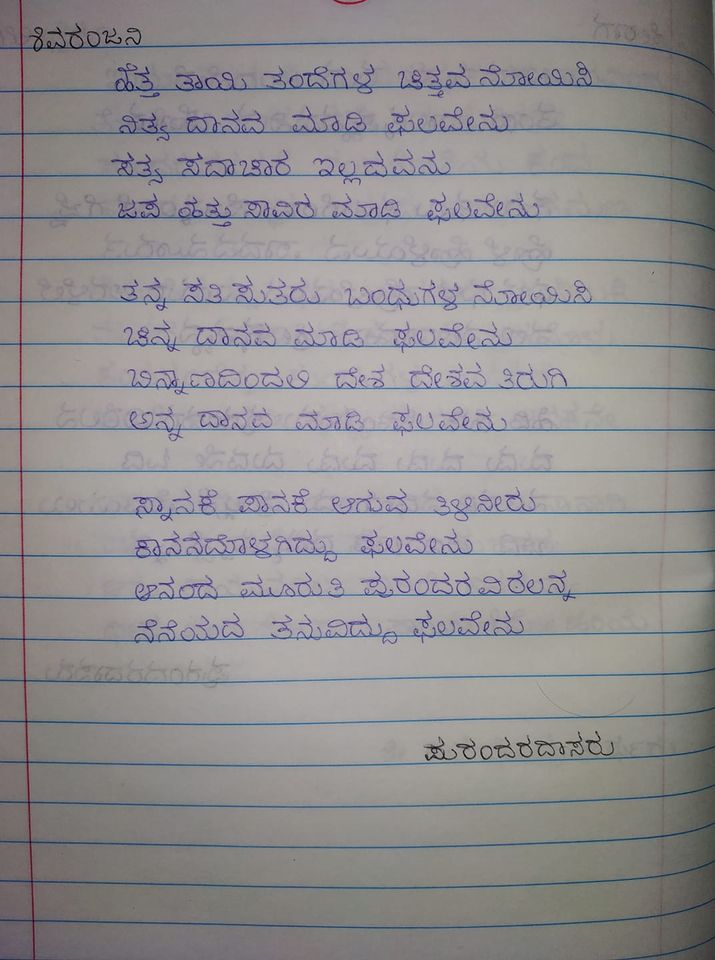 ಶಿವರಂಜನಿ
ಹೆತ್ತ ತಾಯಿ ತಂದೆಗಳ ಚಿತ್ತವ ನೋಯಿಸಿ
ನಿತ್ಯ ದಾನವ ಮಾಡಿ ಫಲವೇನು
ಸತ್ಯ ಸದಾಚಾರ ಇಲ್ಲದವನು
ಜಪ ಹತ್ತು ಸಾವಿರ ಮಾಡಿ ಫಲವೇನು
ತನ್ನ ಸತಿ ಸುತರು ಬಂಧುಗಳ ನೋಯಿಸಿ
ಚಿನ್ನ ದಾನವ ಮಾಡಿ ಫಲವೇನು
ಬಿನ್ನಾಣದಿಂದಲಿ ದೇಶ ದೇಶವ ತಿರುಗಿ
ಅನ್ನ ದಾನವ ಮಾಡಿ ಫಲವೇನು
ಸ್ನಾನಕೆ ಪಾನಕೆ ಆಗುವ ತಿಳಿನೀರು
ಕಾನನದೊಳಗಿದ್ದು ಫಲವೇನು
ಆನಂದ ಮೂರುತಿ ಪುರಂದರವಿಠಲನ್ನ
ನೆನೆಯದ ತನುವಿದ್ದು ಫಲವೇನು
ಪುರಂದರದಾಸರು